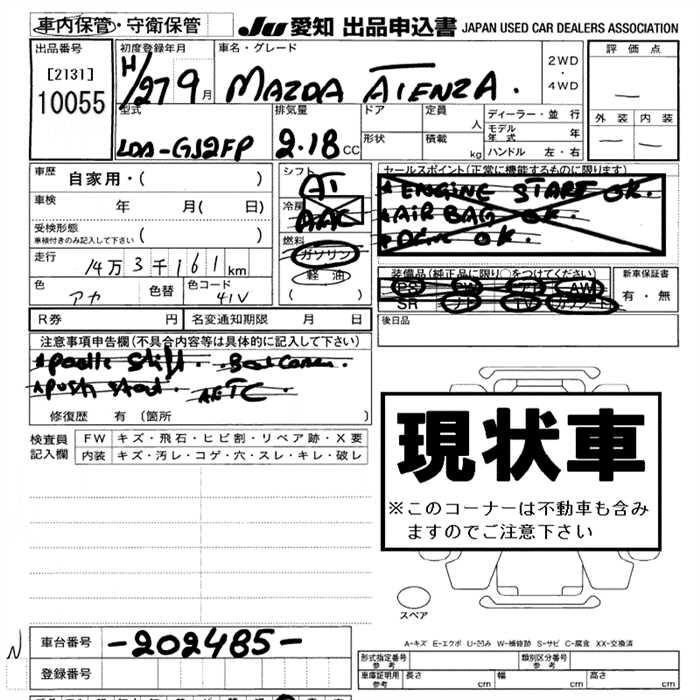 車内保管・守衛保管 JU 愛知 出品申込書 JAPAN USED CAR DEALERS ASSOCIATION
出品番号 初度登録年月 車名・グレード 2WD・4WD 評価点
[2131] 10055 H/27 9月 MAZDA ATENZA. —
型式 排気量 ドア 定員 人 ディーラー・並行 外装 内装
LDA-GJ2FP 2.18CC 形状 積載 kg モデル年式 年 — —
ハンドル 左・右
車歴 自家用・( ) シフト AT セールスポイント(正常に機能するものに限ります)
車検 年 月( 日) 冷房 AAC ENGINE START OK.
受検形態 車検付きのみ記入して下さい ( ) 燃料 ガソリン AIR BAG OK.
走行 14万3千161km 軽油 ( ) OK.
色 アカ 色替 色コード 41V 装備品(純正品に限り○をつけてください) 新車保証書
PS PW AW 有・無
SR TV
R券 円 名変通知期限 月 日 後日品
注意事項申告欄(不具合内容等は具体的に記入して下さい)
ETC.
修復歴 有 (箇所 )
検査員記入欄 FW キズ・飛石・ヒビ割・リペア跡・X要
内装 キズ・汚レ・コゲ・穴・スレ・キレ・破レ
現状車
※このコーナーは不動車も含みますのでご注意下さい
スペア
A-キズ E-エクボ U-凹み W-補修跡 S-サビ C-腐食 XX-交換済
N 車台番号 -202485-
形式指定番号 参考 類別区分番号 参考
登録番号 車庫証明用 参考 長さ cm 幅 cm 高さ cm